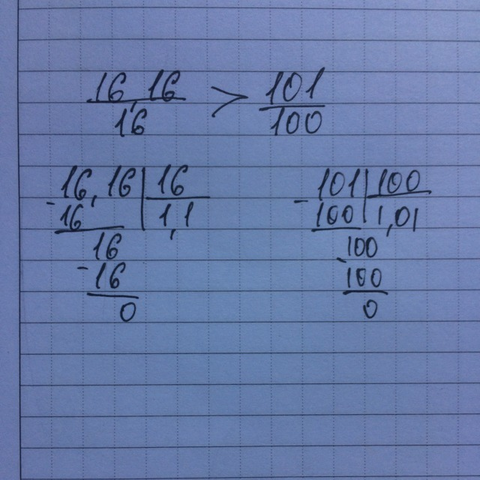 16,16 > 101
16 100
- 16,16 | 16 - 101 | 100
16 | 1,1 100 | 1,01
16 100
- 16 - 100
0 0